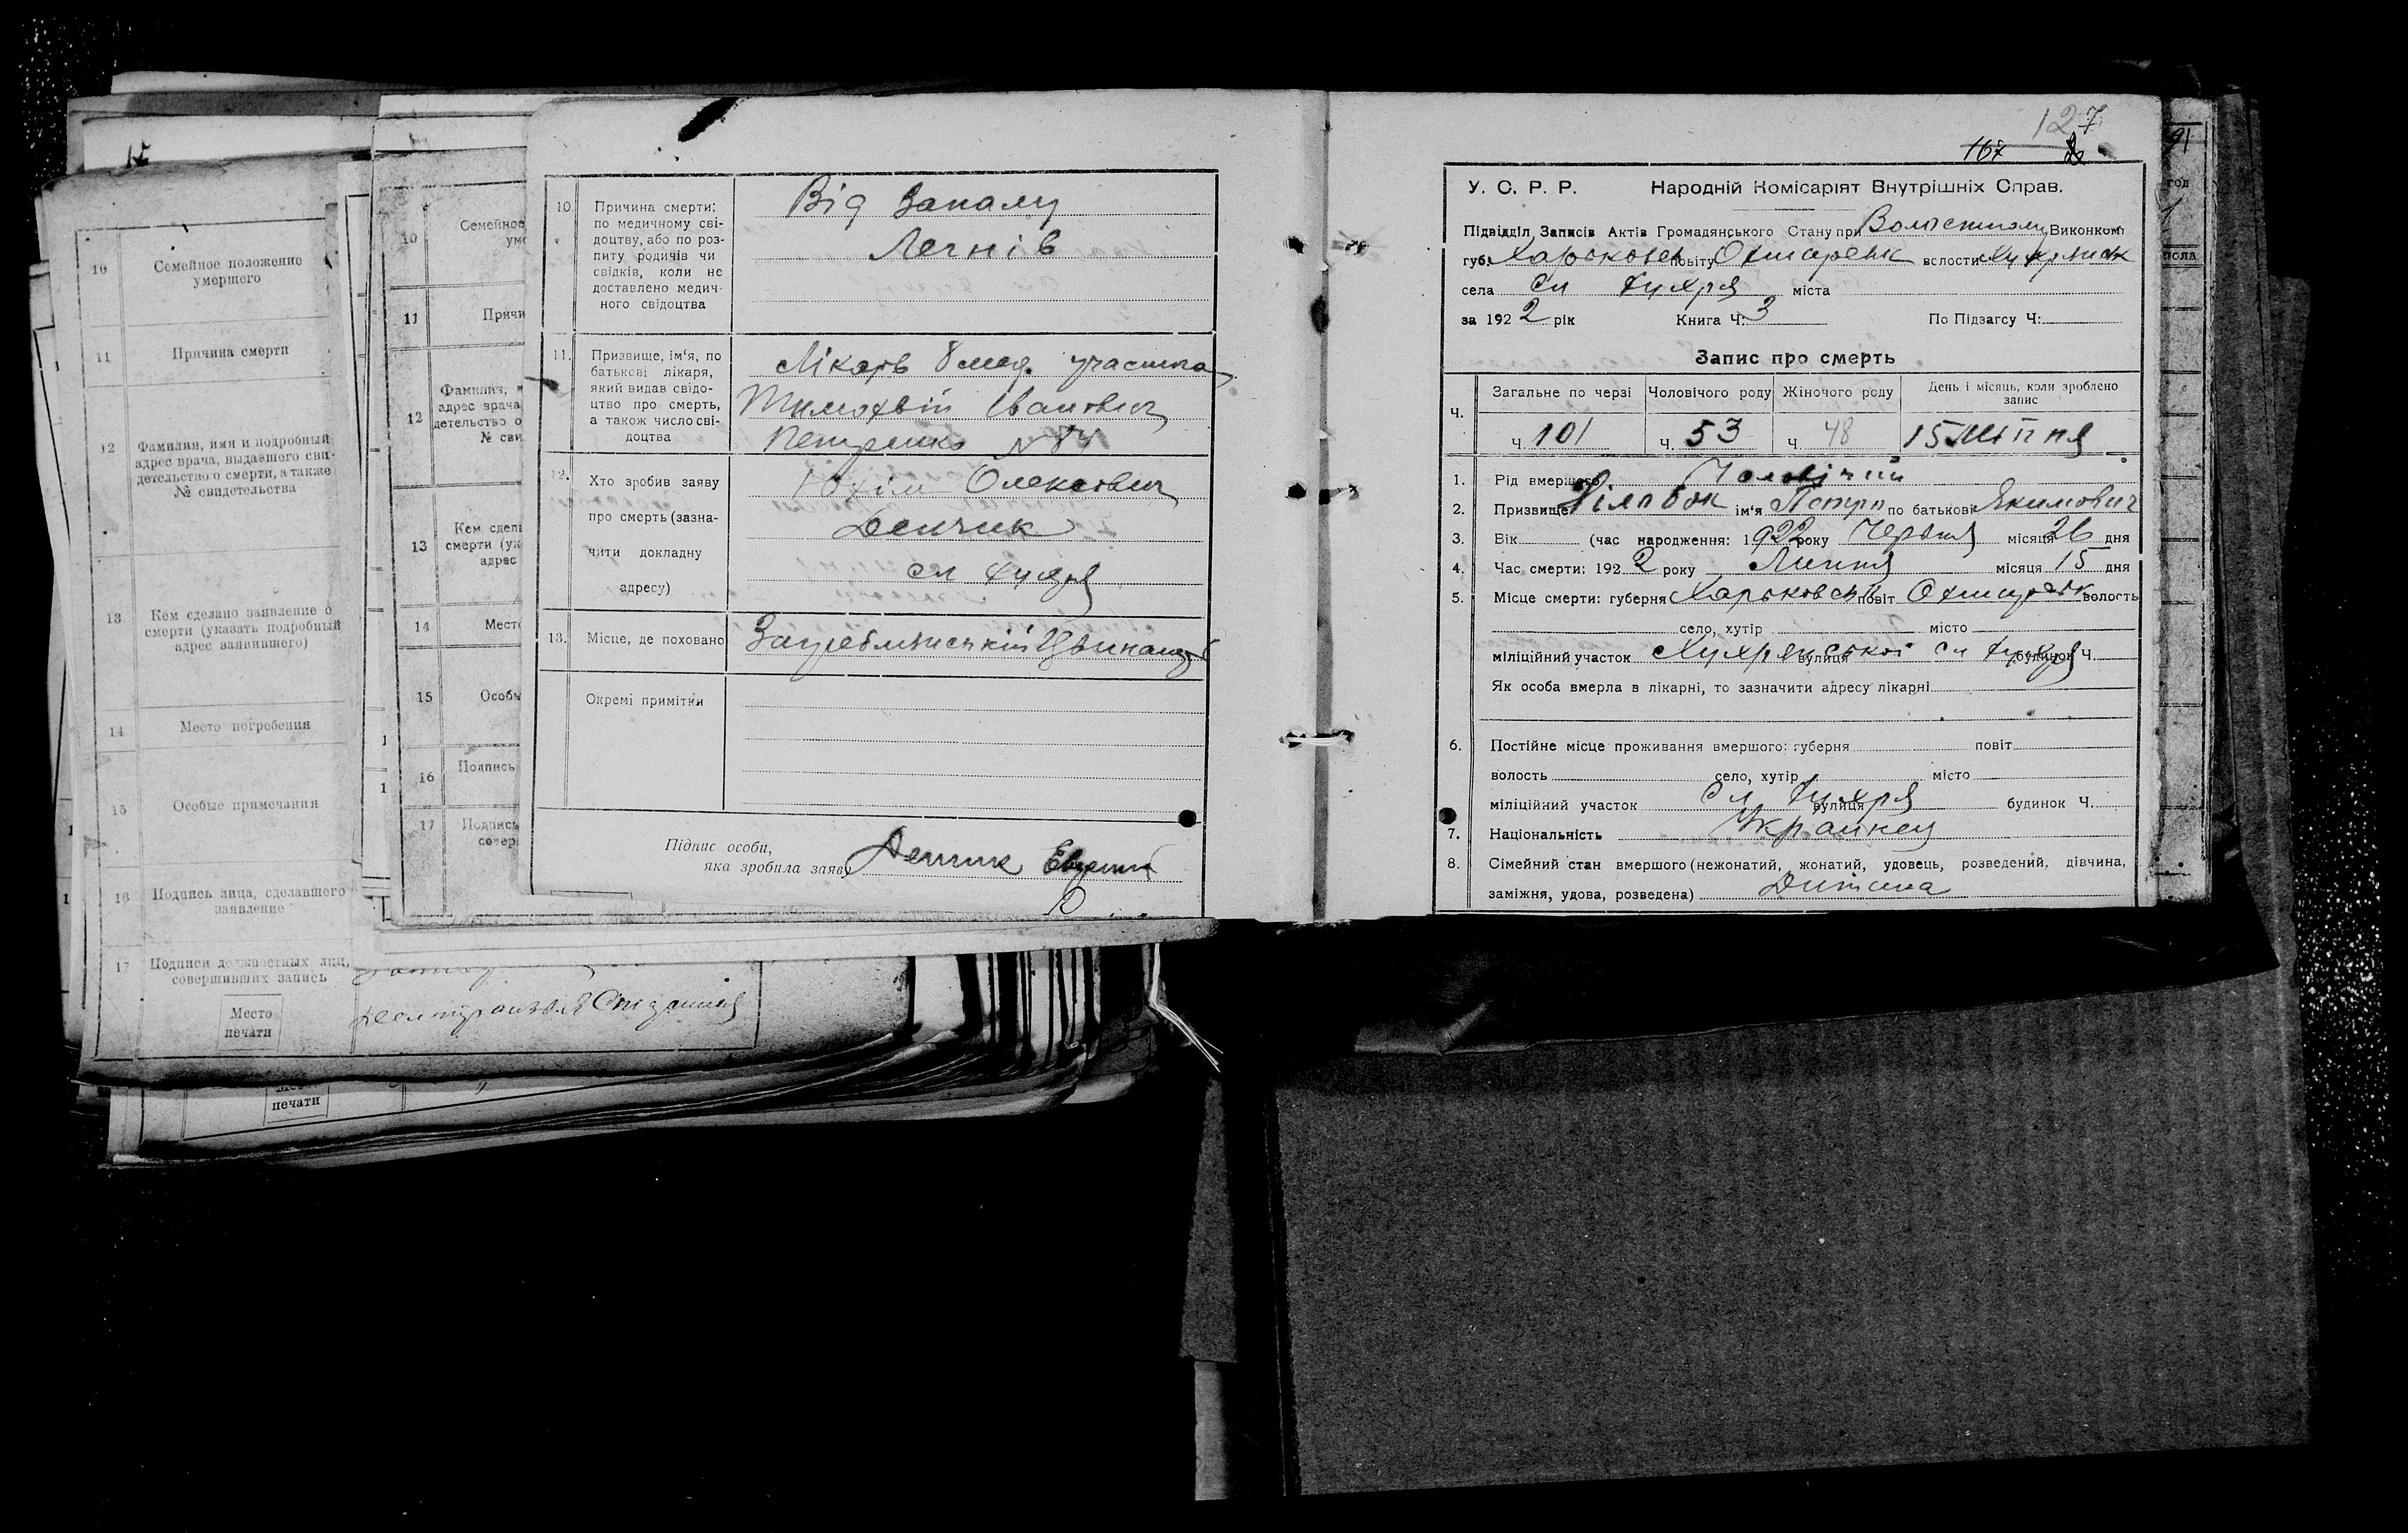 10
Семейное положение
умершего
11
Причина смерти
12
Фамилия, имя и подробный
адрес врача, выдавшего сви-
детельство о смерти, а также
№ свидетельства
13
Кем сделано заявление о
смерти (указать подробный
адрес заявившего)
14
Место погребения
15
Особые примечания
16
Подпись лица, сделавшего
заявление
17
Подписи должностных лиц,
совершивших запись
Место
печати
печати
10
Семейное
11
12
адрес врача
детельство о
13
14
15
16
Подпись
17
10.
Причина смерти:
по медичному сві-
доцтву, або по роз-
питу родичів чи
свідків, коли не
доставлено медич-
ного свідоцтва
Від Запалу
Легнів
11.
Призвище, ім'я, по
батькові лікаря,
який видав свідо-
цтво про смерть,
а також число сві-
доцтва
Лікарь 8 мед. участка
Тимохвій Іванович
Петренко N 84
12.
Хто зробив заяву
про смерть (зазна-
чити докладну
адресу)
Юхім Олексієвич
Денчик
сл Хухря
13.
Місце, де поховано
Окремі примітки
Підпис особи,
яка зробила заяву Денчик
127
167
У. С. Р. Р. Народній Комісаріят Внутрішніх Справ.
Підвідділ Записів Актів Громадянського Стану при Виконкомі
губ. Харьковск повіту Охтирськ волости Хухрянск
села Сл Хухря міста
за 1922 рік Книга Ч. 3 По Підзагсу Ч:
Запис про смерть
Ч. Загальне по черзі Чоловічого роду Жіночого роду День і місяць, коли зроблено
запис
Ч. 101 Ч. 53 Ч. 48 15 Липня
1. Рід вмершого Чоловічий
2. Призвище Білобок ім'я Петро по батькові Якимович
3. Вік (час народження: 1922 року Червня місяця 26 дня
4. Час смерти: 1922 року Липня місяця 15 дня
5. Місце смерти: губерня Харьковськ повіт Охтирськ волость
село, хутір місто
міліційний участок Хухрянської вулиця сл Хухря будинок Ч.
Як особа вмерла в лікарні, то зазначити адресу лікарні
6. Постійне місце проживання вмершого: губерня повіт
волость село, хутір місто
міліційний участок Сл Хухря вулиця будинок Ч.
7. Національність Украинец
8. Сімейний стан вмершого (нежонатий, жонатий, удовець, розведений, дівчина,
заміжня, удова, розведена) Дитина